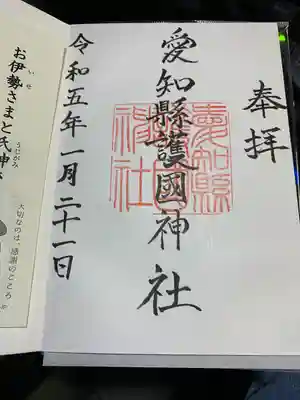 奉拝
愛知縣護國神社
令和五年一月二十一日
お伊勢さまと氏神さ
いせ
うじがみ
大切なのは、感謝のこころ